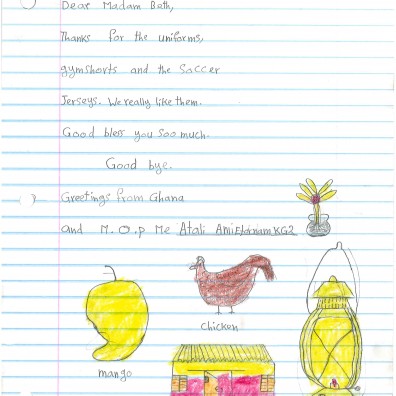 Dear Madam Beth,
Thanks for the uniforms,
gymshorts and the Soccer
Jerseys. We really like them.
Good bless you soo much.
Good bye.
Greetings from Ghana
and M.O.P Me Atali Ami KG2
chicken
mango